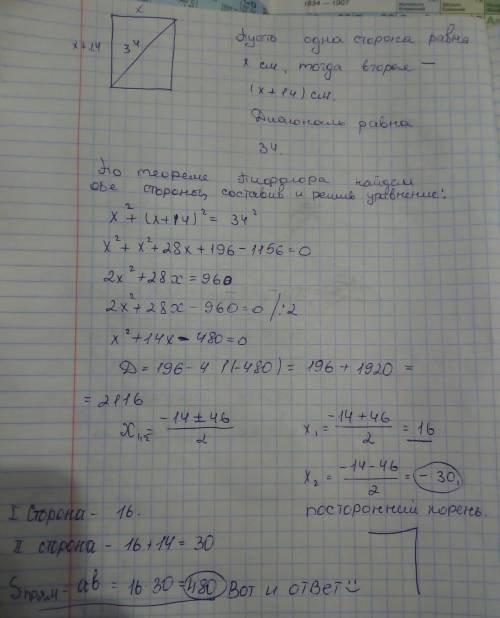 1834 – 1907
x
x+14
34
Пусть одна сторона равна
x см, тогда вторая —
(x+14) см.
Диагональ равна
34.
По теореме Пифагора найдем
обе стороны, составив и решив уравнение:
x² + (x+14)² = 34²
x² + x² + 28x + 196 - 1156 = 0
2x² + 28x = 960
2x² + 28x - 960 = 0 /:2
x² + 14x - 480 = 0
Д = 196 - 4·1·(-480) = 196 + 1920 =
= 2116
x₁,₂ = (-14 ± 46)/2
x₁ = (-14 + 46)/2 = 16
x₂ = (-14 - 46)/2 = -30,
посторонний корень.
I сторона - 16.
II сторона - 16 + 14 = 30
Sпрям = ab = 16·30 = 480 Вот и ответ